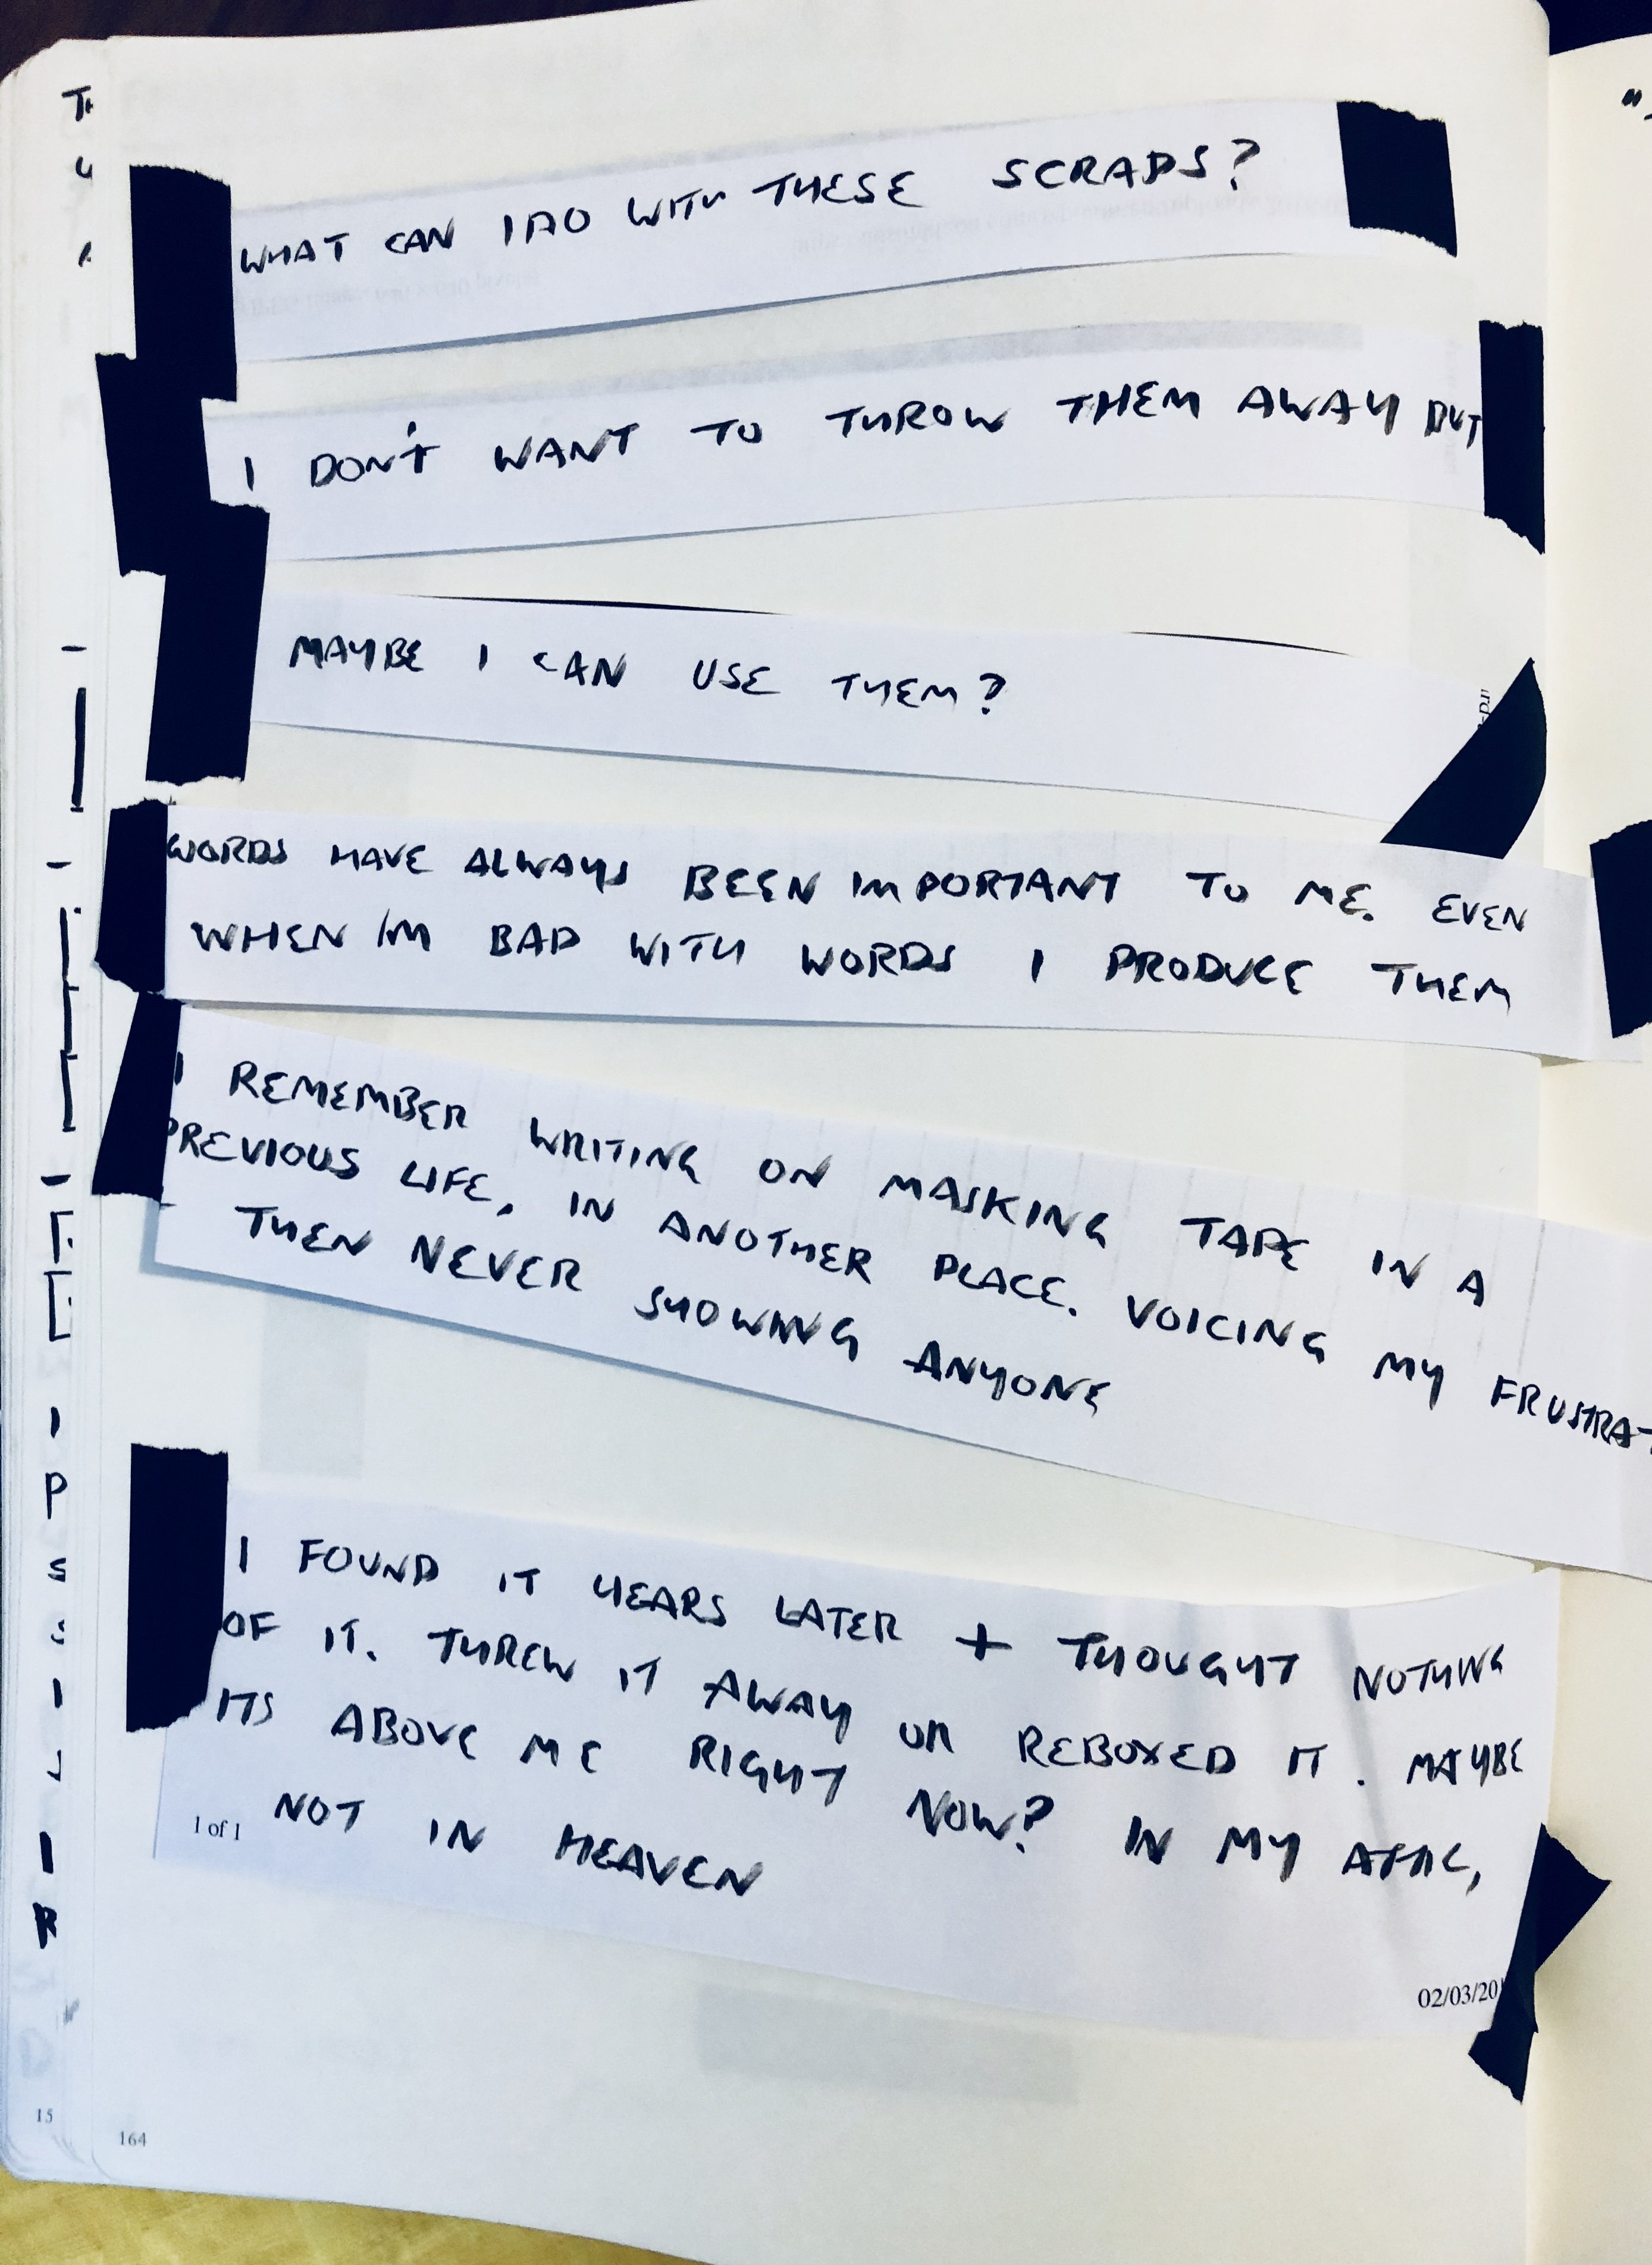 WHAT CAN I DO WITH THESE SCRAPS?
I DON'T WANT TO THROW THEM AWAY BUT
MAYBE I CAN USE THEM?
WORDS HAVE ALWAYS BEEN IMPORTANT TO ME. EVEN
WHEN I'M BAD WITH WORDS I PRODUCE THEM
I REMEMBER WRITING ON MASKING TAPE IN A
PREVIOUS LIFE, IN ANOTHER PLACE. VOICING MY FRUSTRAT
- THEN NEVER SHOWING ANYONE
I FOUND IT YEARS LATER + THOUGHT NOTHING
OF IT. THREW IT AWAY OR REBOXED IT. MAYBE
ITS ABOVE ME RIGHT NOW? IN MY ATTIC,
NOT IN HEAVEN
1 of 1
02/03/20
15
164